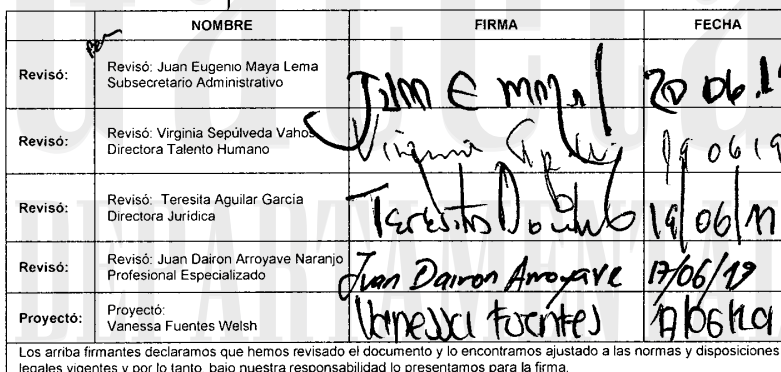 NOMBRE FIRMA FECHA
Revisó: Revisó: Juan Eugenio Maya Lema
Subsecretario Administrativo
Juan E Maya L 20 06.19
Revisó: Revisó: Virginia Sepúlveda Vahos
Directora Talento Humano
Virginia 19 06 19
Revisó: Revisó: Teresita Aguilar Garcia
Directora Jurídica
Teresita 19/06/19
Revisó: Revisó: Juan Dairon Arroyave Naranjo
Profesional Especializado
Juan Dairon Arroyave 17/06/19
Proyectó: Proyectó:
Vanessa Fuentes Welsh
Vanessa Fuentes 17/06/19
Los arriba firmantes declaramos que hemos revisado el documento y lo encontramos ajustado a las normas y disposiciones
legales vigentes y por lo tanto, bajo nuestra responsabilidad lo presentamos para la firma.